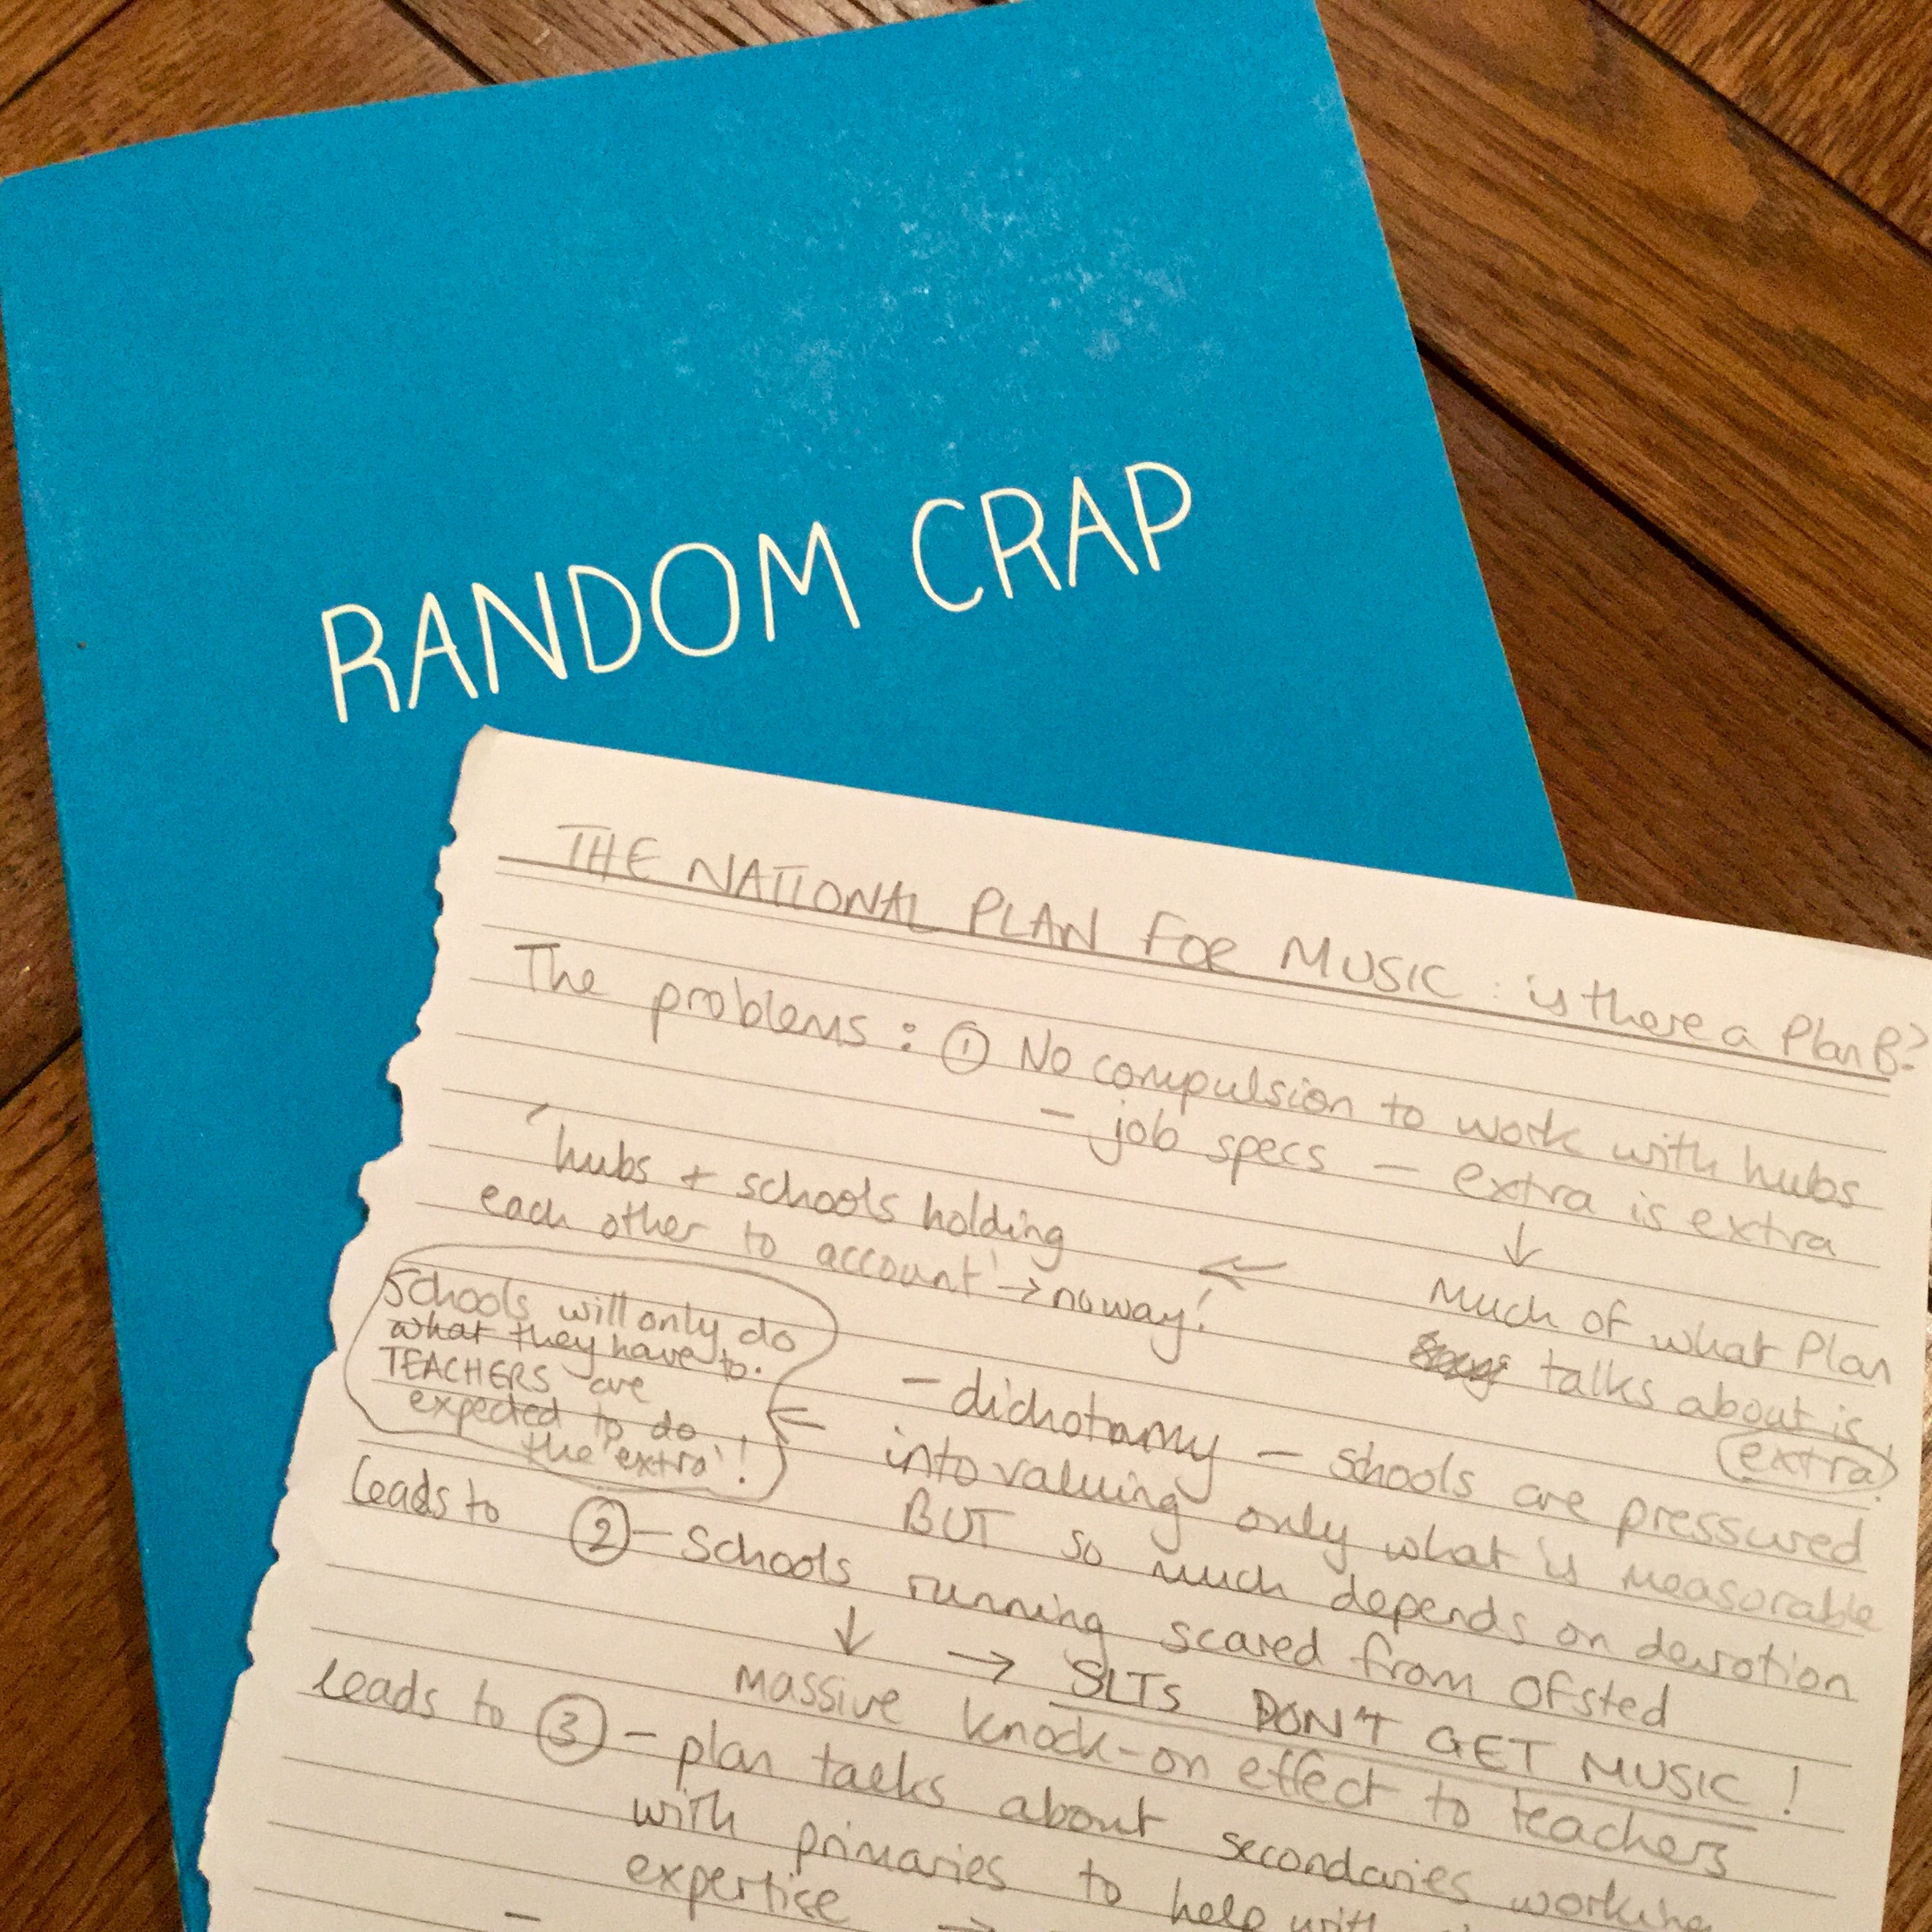 RANDOM CRAP
THE NATIONAL PLAN FOR MUSIC : is there a Plan B?
The problems : ① No compulsion to work with hubs
- job specs — extra is extra
↓
Much of what Plan
talks about is
extra!
←
'hubs + schools holding
each other to account' → no way!
- dichotomy — schools are pressured
into valuing only what is measorable
BUT so much depends on devotion
←
Schools will only do
what they have to.
TEACHERS are
expected to do
the 'extra'!
leads to ② — Schools running scared from Ofsted
↓ → SLTs DON'T GET MUSIC!
Massive knock-on effect to teachers
leads to ③ - plan talks about secondaries working
with primaries to help with
expertise →